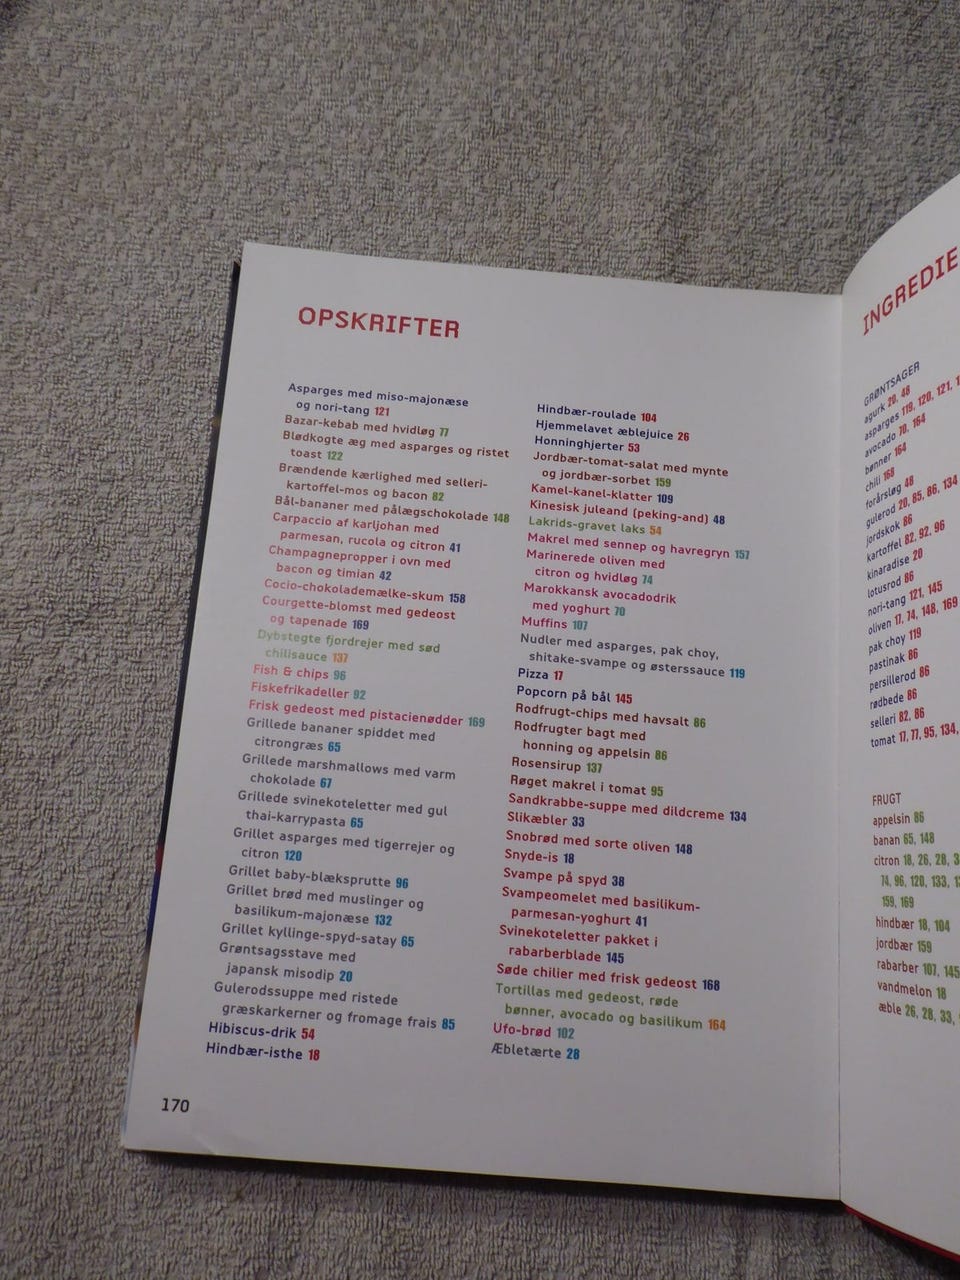 OPSKRIFTER
Asparges med miso-majonæse
og nori-tang 121
Bazar-kebab med hvidløg 77
Blødkogte æg med asparges og ristet
toast 122
Brændende kærlighed med selleri-
kartoffel-mos og bacon 82
Bål-bananer med pålægschokolade 148
Carpaccio af karljohan med
parmesan, rucola og citron 41
Champagnepropper i ovn med
bacon og timian 42
Cocio-chokolademælke-skum 158
Courgette-blomst med gedeost
og tapenade 169
Dybstegte fjordrejer med sød
chilisauce 137
Fish & chips 96
Fiskefrikadeller 92
Frisk gedeost med pistacienødder 169
Grillede bananer spiddet med
citrongræs 65
Grillede marshmallows med varm
chokolade 67
Grillede svinekoteletter med gul
thai-karrypasta 65
Grillet asparges med tigerrejer og
citron 120
Grillet baby-blæksprutte 96
Grillet brød med muslinger og
basilikum-majonæse 132
Grillet kyllinge-spyd-satay 65
Grøntsagsstave med
japansk misodip 20
Gulerodssuppe med ristede
græskarkerner og fromage frais 85
Hibiscus-drik 54
Hindbær-isthe 18
Hindbær-roulade 104
Hjemmelavet æblejuice 26
Honninghjerter 53
Jordbær-tomat-salat med mynte
og jordbær-sorbet 159
Kamel-kanel-klatter 109
Kinesisk juleand (peking-and) 48
Lakrids-gravet laks 54
Makrel med sennep og havregryn 157
Marinerede oliven med
citron og hvidløg 74
Marokkansk avocadodrik
med yoghurt 70
Muffins 107
Nudler med asparges, pak choy,
shitake-svampe og østerssauce 119
Pizza 17
Popcorn på bål 145
Rodfrugt-chips med havsalt 86
Rodfrugter bagt med
honning og appelsin 86
Rosensirup 137
Røget makrel i tomat 95
Sandkrabbe-suppe med dildcreme 134
Slikæbler 33
Snobrød med sorte oliven 148
Snyde-is 18
Svampe på spyd 38
Svampeomelet med basilikum-
parmesan-yoghurt 41
Svinekoteletter pakket i
rabarberblade 145
Søde chilier med frisk gedeost 168
Tortillas med gedeost, røde
bønner, avocado og basilikum 164
Ufo-brød 102
Æbletærte 28
170
INGREDIE
GRØNTSAGER
agurk 20, 48
asparges 119, 120, 121, 1
avocado 70, 164
bønner 164
chili 168
forårsløg 48
gulerod 20, 85, 86, 134
jordskok 86
kartoffel 82, 92, 96
kinaradise 20
lotusrod 86
nori-tang 121, 145
oliven 17, 74, 148, 169
pak choy 119
pastinak 86
persillerod 86
rødbede 86
selleri 82, 86
tomat 17, 77, 95, 134,
FRUGT
appelsin 86
banan 65, 148
citron 18, 26, 28, 3
74, 96, 120, 133, 1
159, 169
hindbær 18, 104
jordbær 159
rabarber 107, 145
vandmelon 18
æble 26, 28, 33,